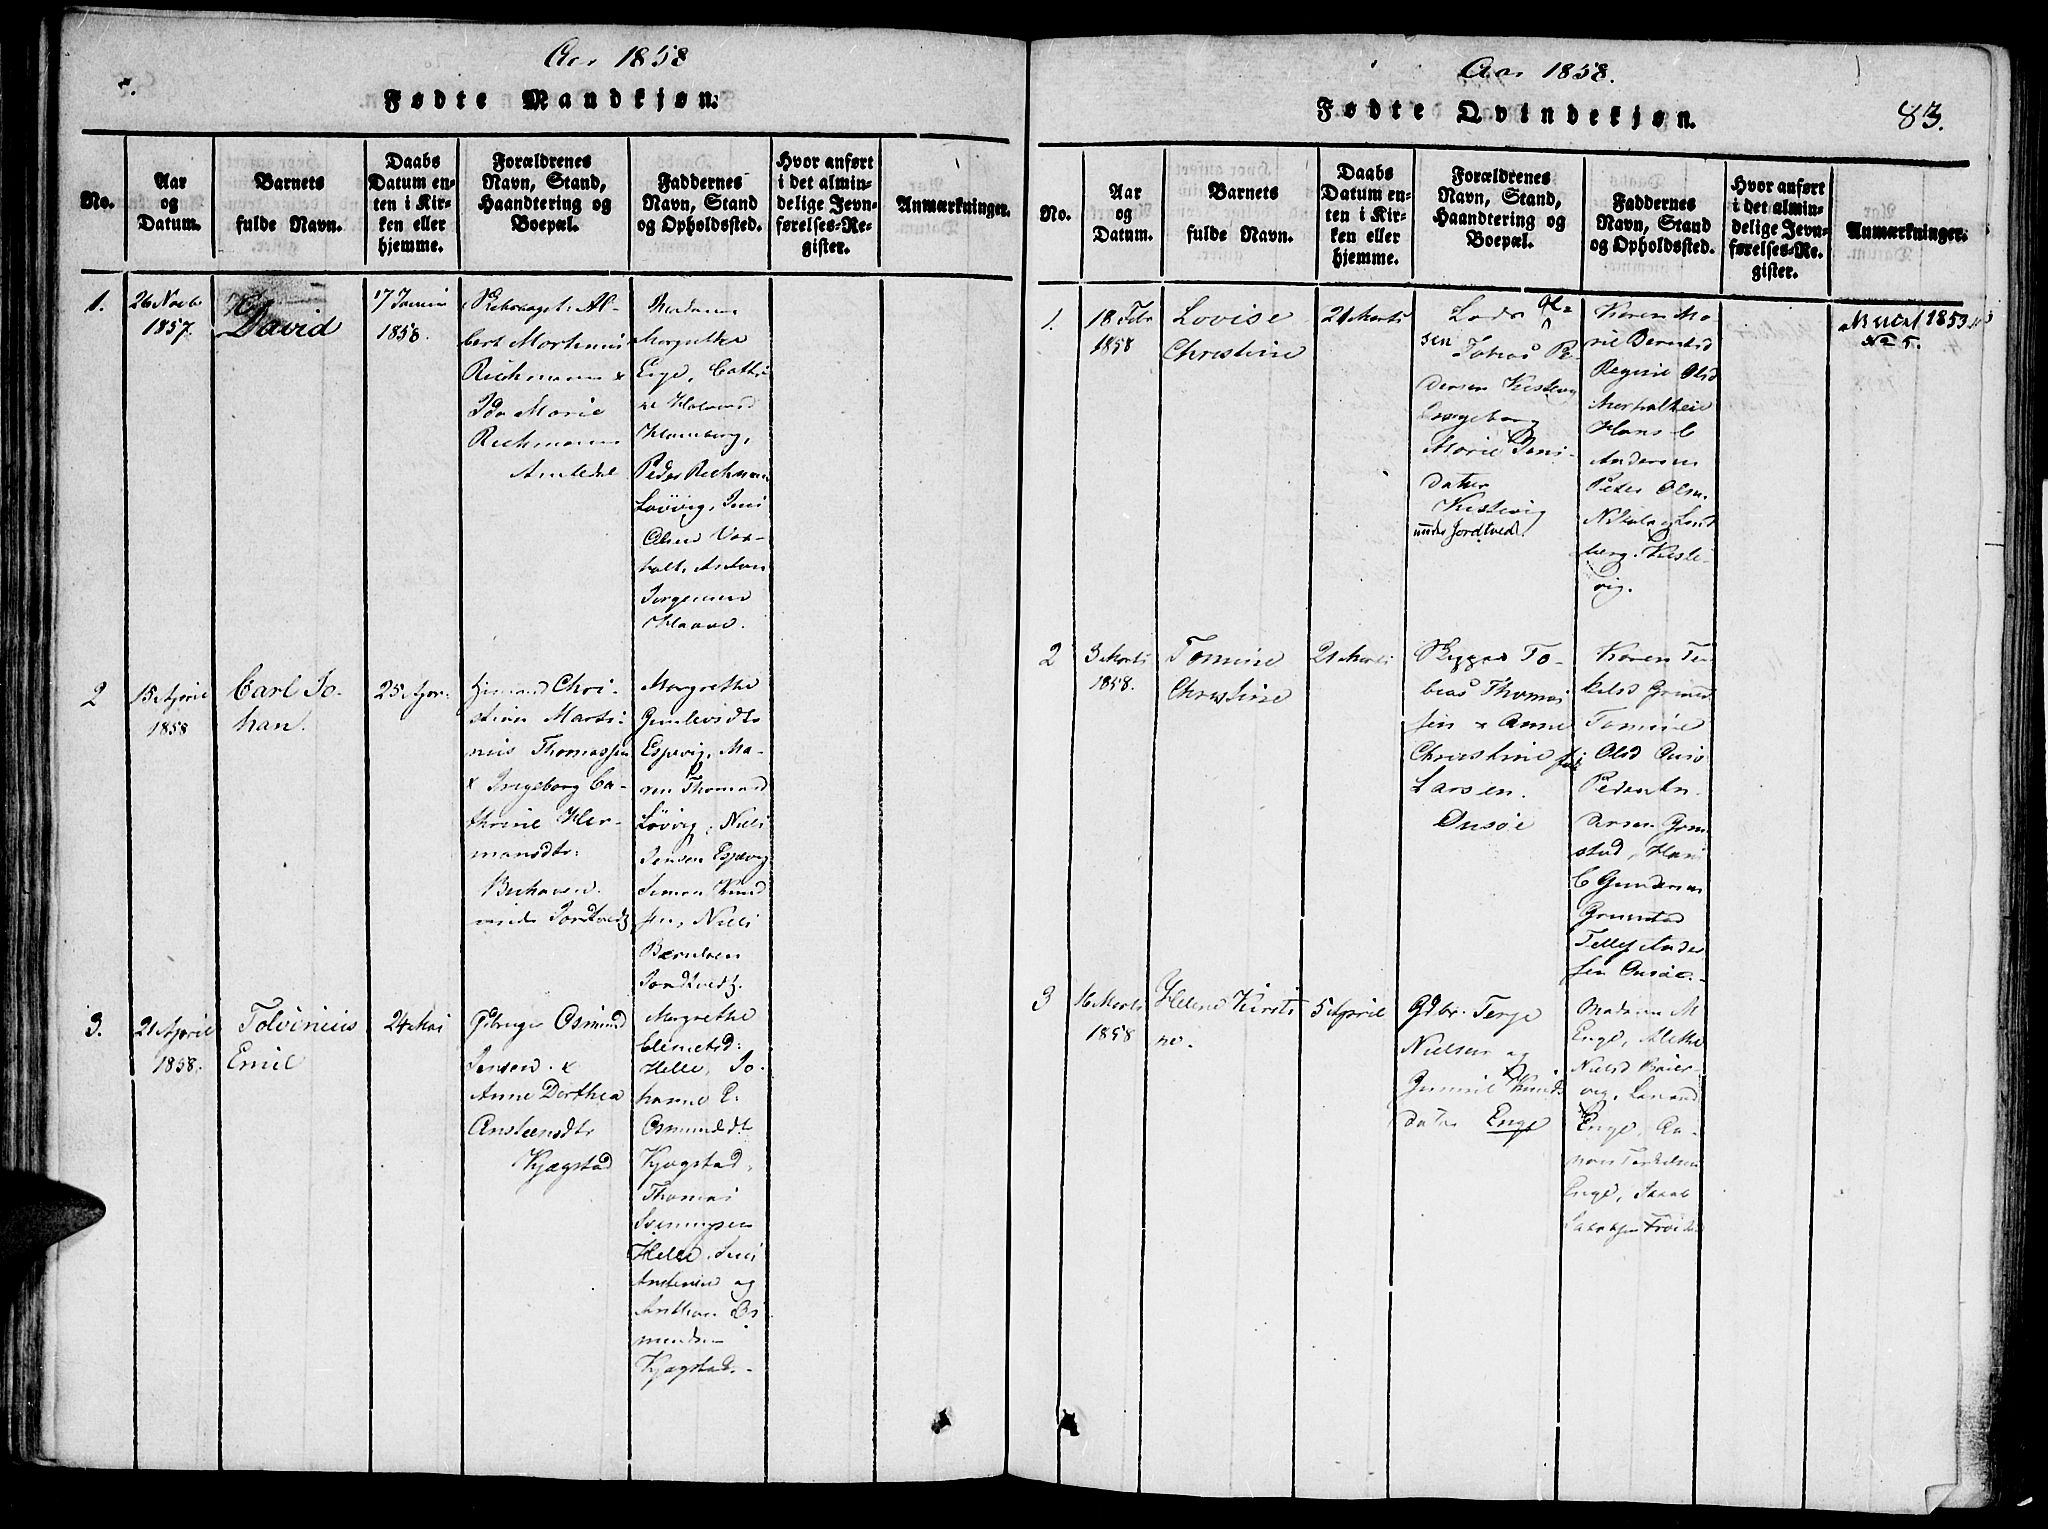 Aar 1858
Fødte Mandkjøn.
No.
Aar
og
Datum.
Barnets
fulde Navn.
Daabs
Datum en-
ten i Kir-
ken eller
hjemme.
Forældrenes
Navn, Stand,
Haandtering og
Boepæl.
Faddernes
Navn, Stand
og Opholdssted.
Hvor anført
i det almin-
delige Jevn-
førelses-Re-
gister.
Anmærkninger.
1.
26 Novb
1857.
David
17
1858.
bert Mortinius
Richmann &
Ida Marie
Richmann
Madame
Margrethe
Enge, Cathri
ne
Peder Richmann
Løvvig, Jens
Olsen Vaa-
holt, Anton
Jørgensen
2
15 April
1858
Carl Jo-
han.
25 Apr:
Chri-
stian Marti-
nius Thomassen
& Ingeborg Ca-
thrine Her-
mansdtr:
under Jordtvedt
Margrethe
Espevig, Ma-
ren Thomasd
Løvvig, Niels
Jensen Espevig
Simon Knud
sen, Niels
Berntsen
Jordtvedt.
3.
21 April
1858.
Tolvinius
Emil
24 Mai
Gbruger Osmund
Jensen &
Anne Dorthea
Anstensdtr
Kjægstad
Margrethe
Clemetsd:
Helle, Jo-
hanne E.
Osmundsdt
Kjægstad,
Thomas
Helle, Jens
Anstensen og
Anthon Os
mundsen
Kjægstad.
Aar 1858.
83.
Fødte Qvindekjøn.
No.
Aar
og
Datum.
Barnets
fulde Navn.
Daabs
Datum en-
ten i Kir-
ken eller
hjemme.
Forældrenes
Navn, Stand,
Haandtering og
Boepæl.
Faddernes
Navn, Stand
og Opholdssted.
Hvor anført
i det almin-
delige Jevn-
førelses-Re-
gister.
Anmærkninger.
1.
18 Feb
1858
Lovise
Christine
21 Marts
Lods Ol-
sen
Tobias Pe
dersen Kistevig
Ingeborg
Marie Jens-
datter
Kistevig
under Jordtved.
Karen Ma
rie Berntsd
Regine Olsd
Hans C
Andersen
Peter Olsen
Nikolai Lund
berg, Kiste-
vig.
1853
No 5.
2
3 Marts
1858.
Tomine
Christine
21 Marts
Skipper To-
bias Thomas
sen & Anne
Christine
Larsen.
Onsøe
Karen Ter
kelsd Grimstad
Tomine
Olsd Onsø
Peder An-
dersen Grim
stad, Hans
C Gundersen
Grimstad
Tellef Ander
sen Onsøe.
3
16 Marts
1858
Helene Kirsti
ne.
5 April
Gdbr. Terje
Nielsen og
Gunnil Knuds
datter Enge
Madame M
Enge, Alethe
Nielsd
vig,
Enge, Aa-
non Terkelsen
Enge, Jacob
Jakobsen